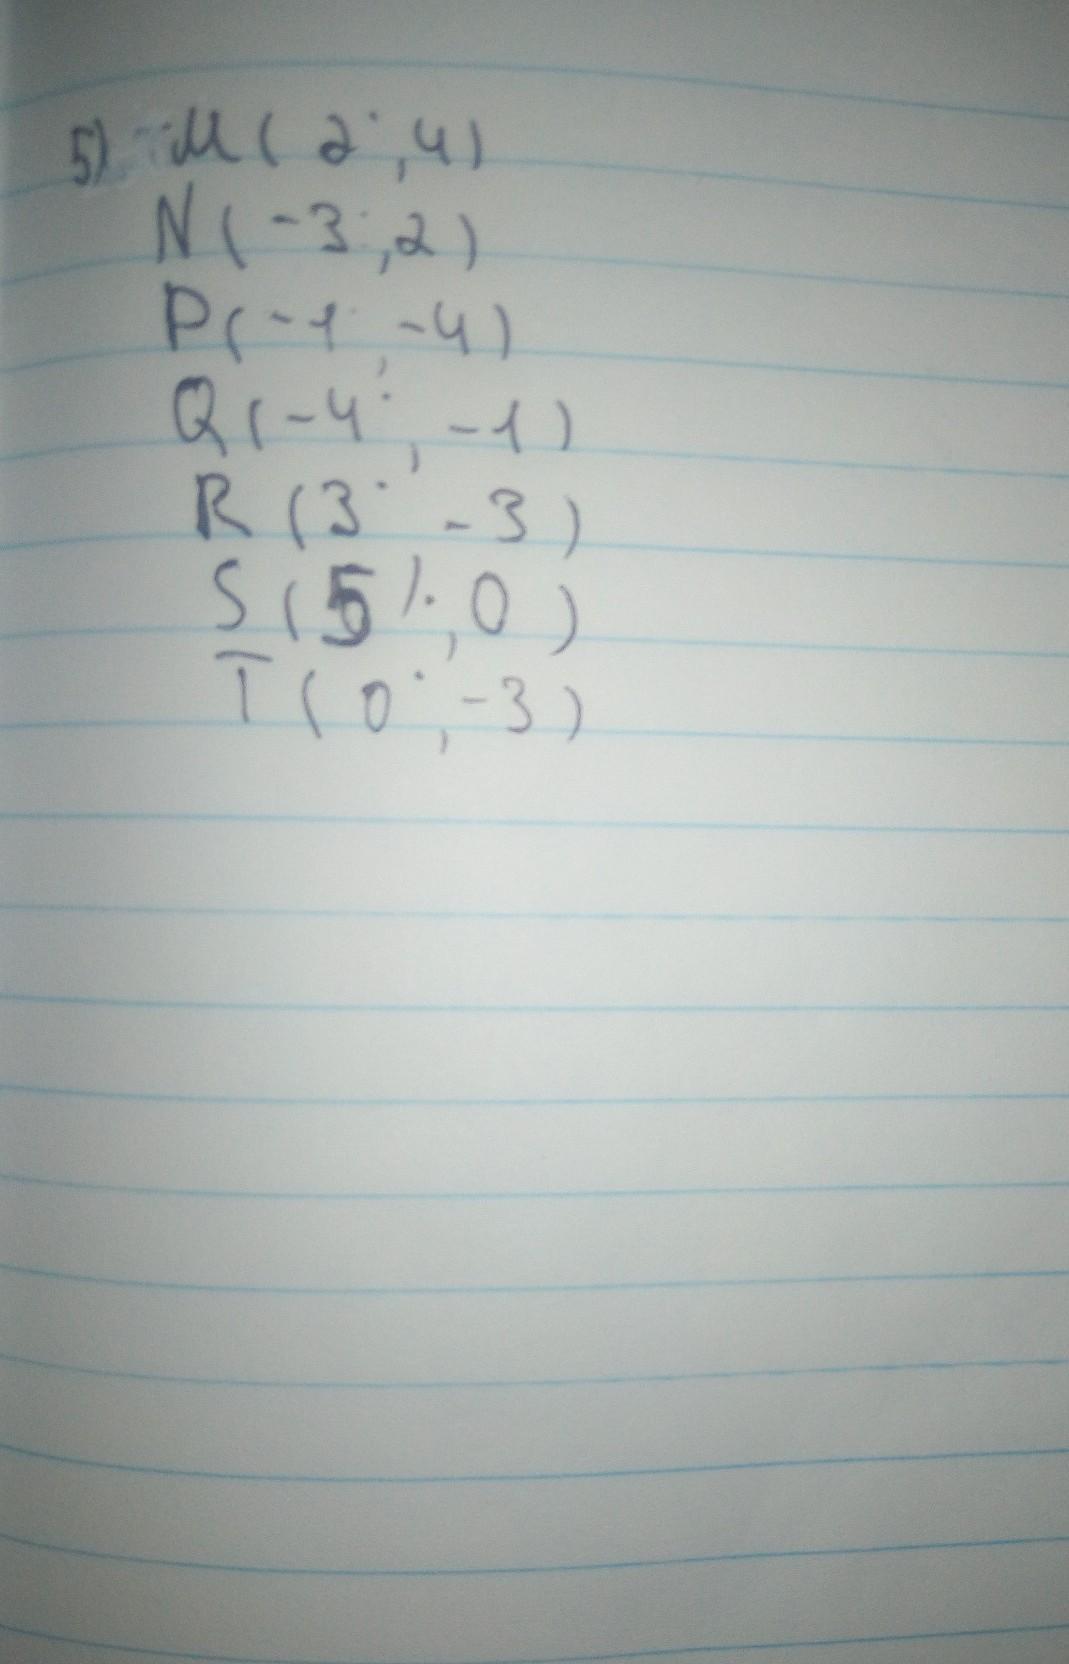 5) M ( 2 ; 4)
N ( -3 ; 2 )
P( -1 ; -4)
Q( -4 ; -1 )
R ( 3 ; -3 )
S ( 5 ; 0 )
T ( 0 ; -3 )